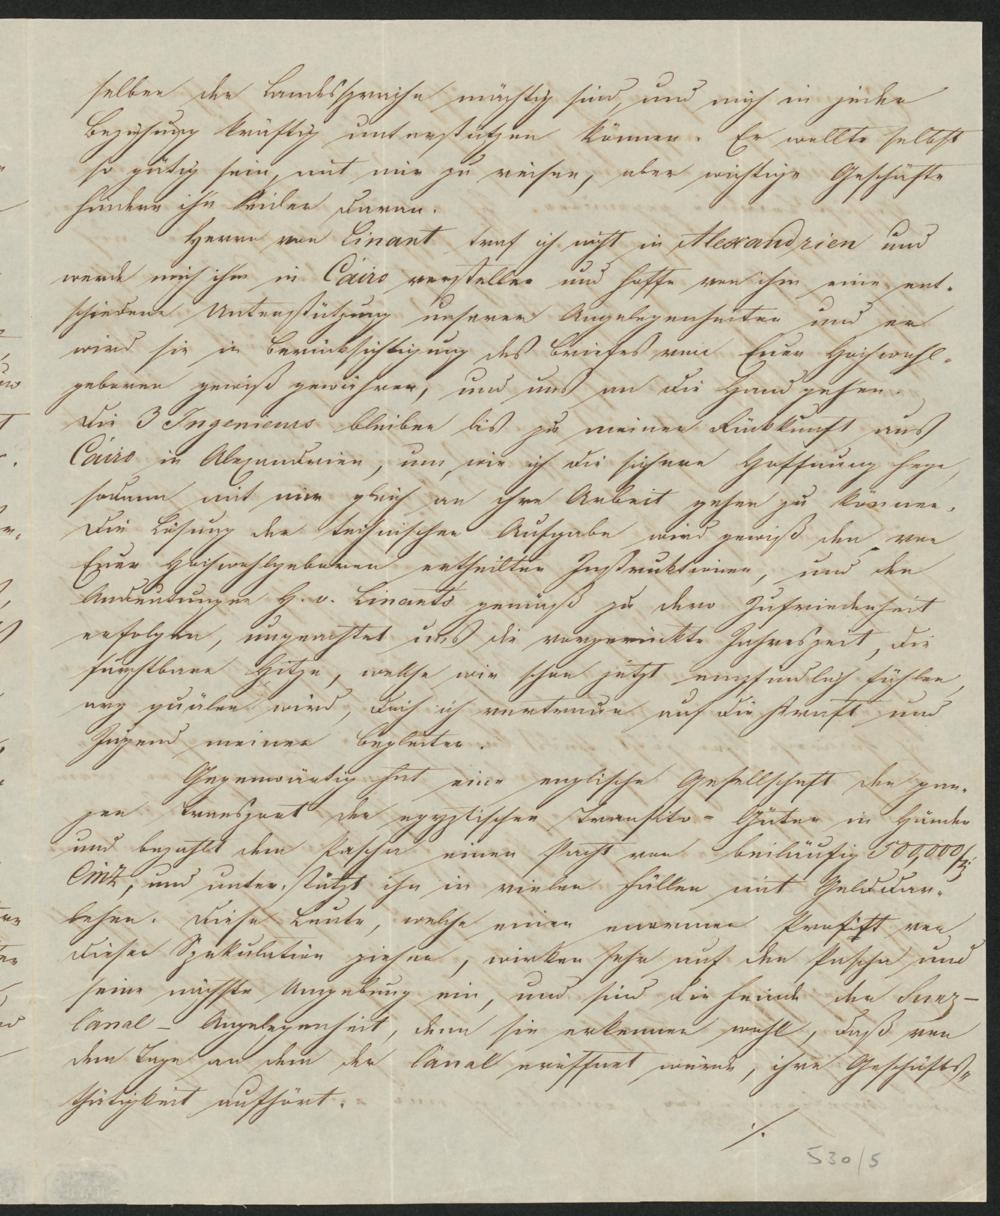 selben der Landessprache mächtig sind, und mich in jeder
Beziehung kräftig unterstützen können. Er wollte selbst
so gütig sein, mit mir zu reisen, aber wichtige Geschäfte
hindern ihn leider daran.
Herrn von Linant traf ich nicht in Alexandrien und
werde mich ihm in Cairo vorstellen und hoffe von ihm eine ent-
schiedene Unterstützung unserer Angelegenheiten und er
wird sie in Berücksichtigung des Briefes von Euer Hochwohl-
geboren gewiß gewähren, und uns an die Hand gehen.
Die 3 Ingenieurs bleiben bis zu meiner Rückkunft aus
Cairo in Alexandrien, um, wie ich die sichere Hoffnung hege,
sodann mit mir gleich an ihre Arbeit gehen zu können.
Die Lösung der technischen Aufgabe wird gewiß den von
Euer Hochwohlgeboren ertheilten Instruktionen, und den
Andeutungen H. v. Linants gemäß zu dero Zufriedenheit
erfolgen, ungeachtet uns die vorgerückte Jahreszeit, die
furchtbare Hitze, welche wir schon jetzt empfindlich fühlen,
arg quälen wird, doch ich vertraue auf die Kraft und
Jugend meiner Begleiter.
Gegenwärtig hat eine englische Gesellschaft den gan-
zen Transport der egyptischen Transito-Güter in Händen
und bezahlt dem Pascha einen Pacht von beiläufig 500,000 f
CMz, und unterstützt ihn in vielen Fällen mit Gelddar-
lehen. Diese Leute, welche einen enormen Profit von
dieser Spekulation ziehen, wirken sehr auf den Pascha und
seine nächste Umgebung ein, und sind die Feinde der Suez-
Canal-Angelegenheit, denn sie erkennen wohl, daß von
dem Tage an dem der Canal eröffnet würde, ihre Geschäfts-
thätigkeit aufhört.
./.
530/5